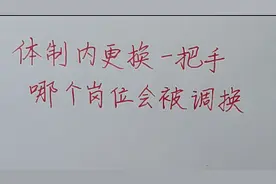 体制内更换一把手
哪个岗位会被调换